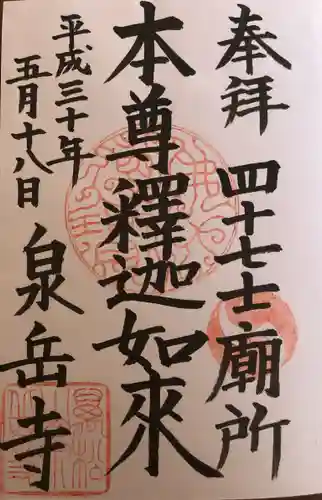 奉拝 四十七士廟所
本尊釋迦如來
平成三十年
五月十八日 泉岳寺